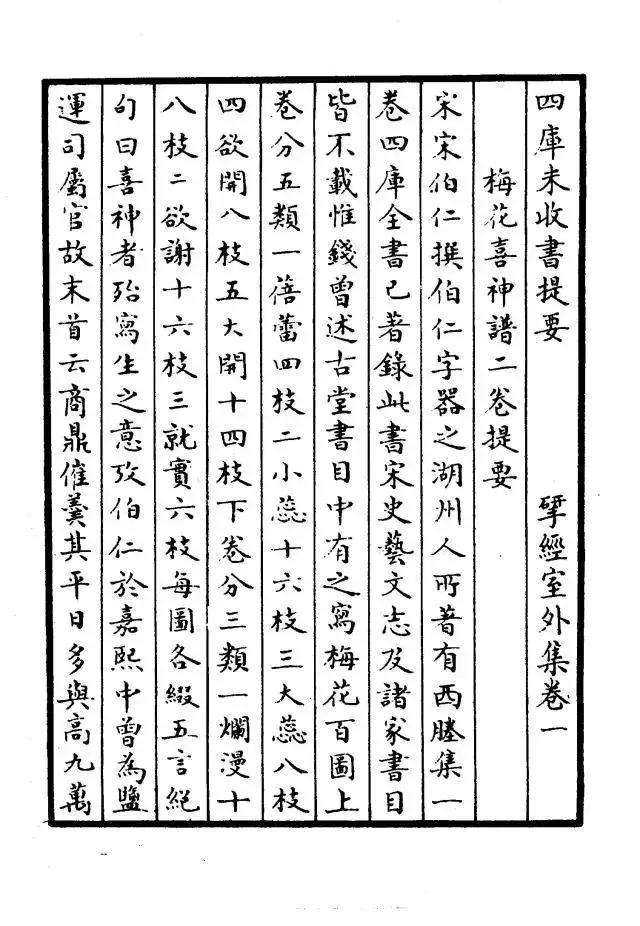 四庫未收書提要　揅經室外集卷一
梅花喜神譜二卷提要
宋宋伯仁撰伯仁字器之湖州人所著有西塍集一
卷四庫全書已著錄此書宋史藝文志及諸家書目
皆不載惟錢曾述古堂書目中有之寫梅花百圖上
卷分五類一蓓蕾四枝二小蕊十六枝三大蕊八枝
四欲開八枝五大開十四枝下卷分三類一爛漫十
八枝二欲謝十六枝三就實六枝每圖各綴五言絕
句曰喜神者殆寫生之意攷伯仁於嘉熙中曾為鹽
運司屬官故末首云商鼎催羹其平日多與高九萬